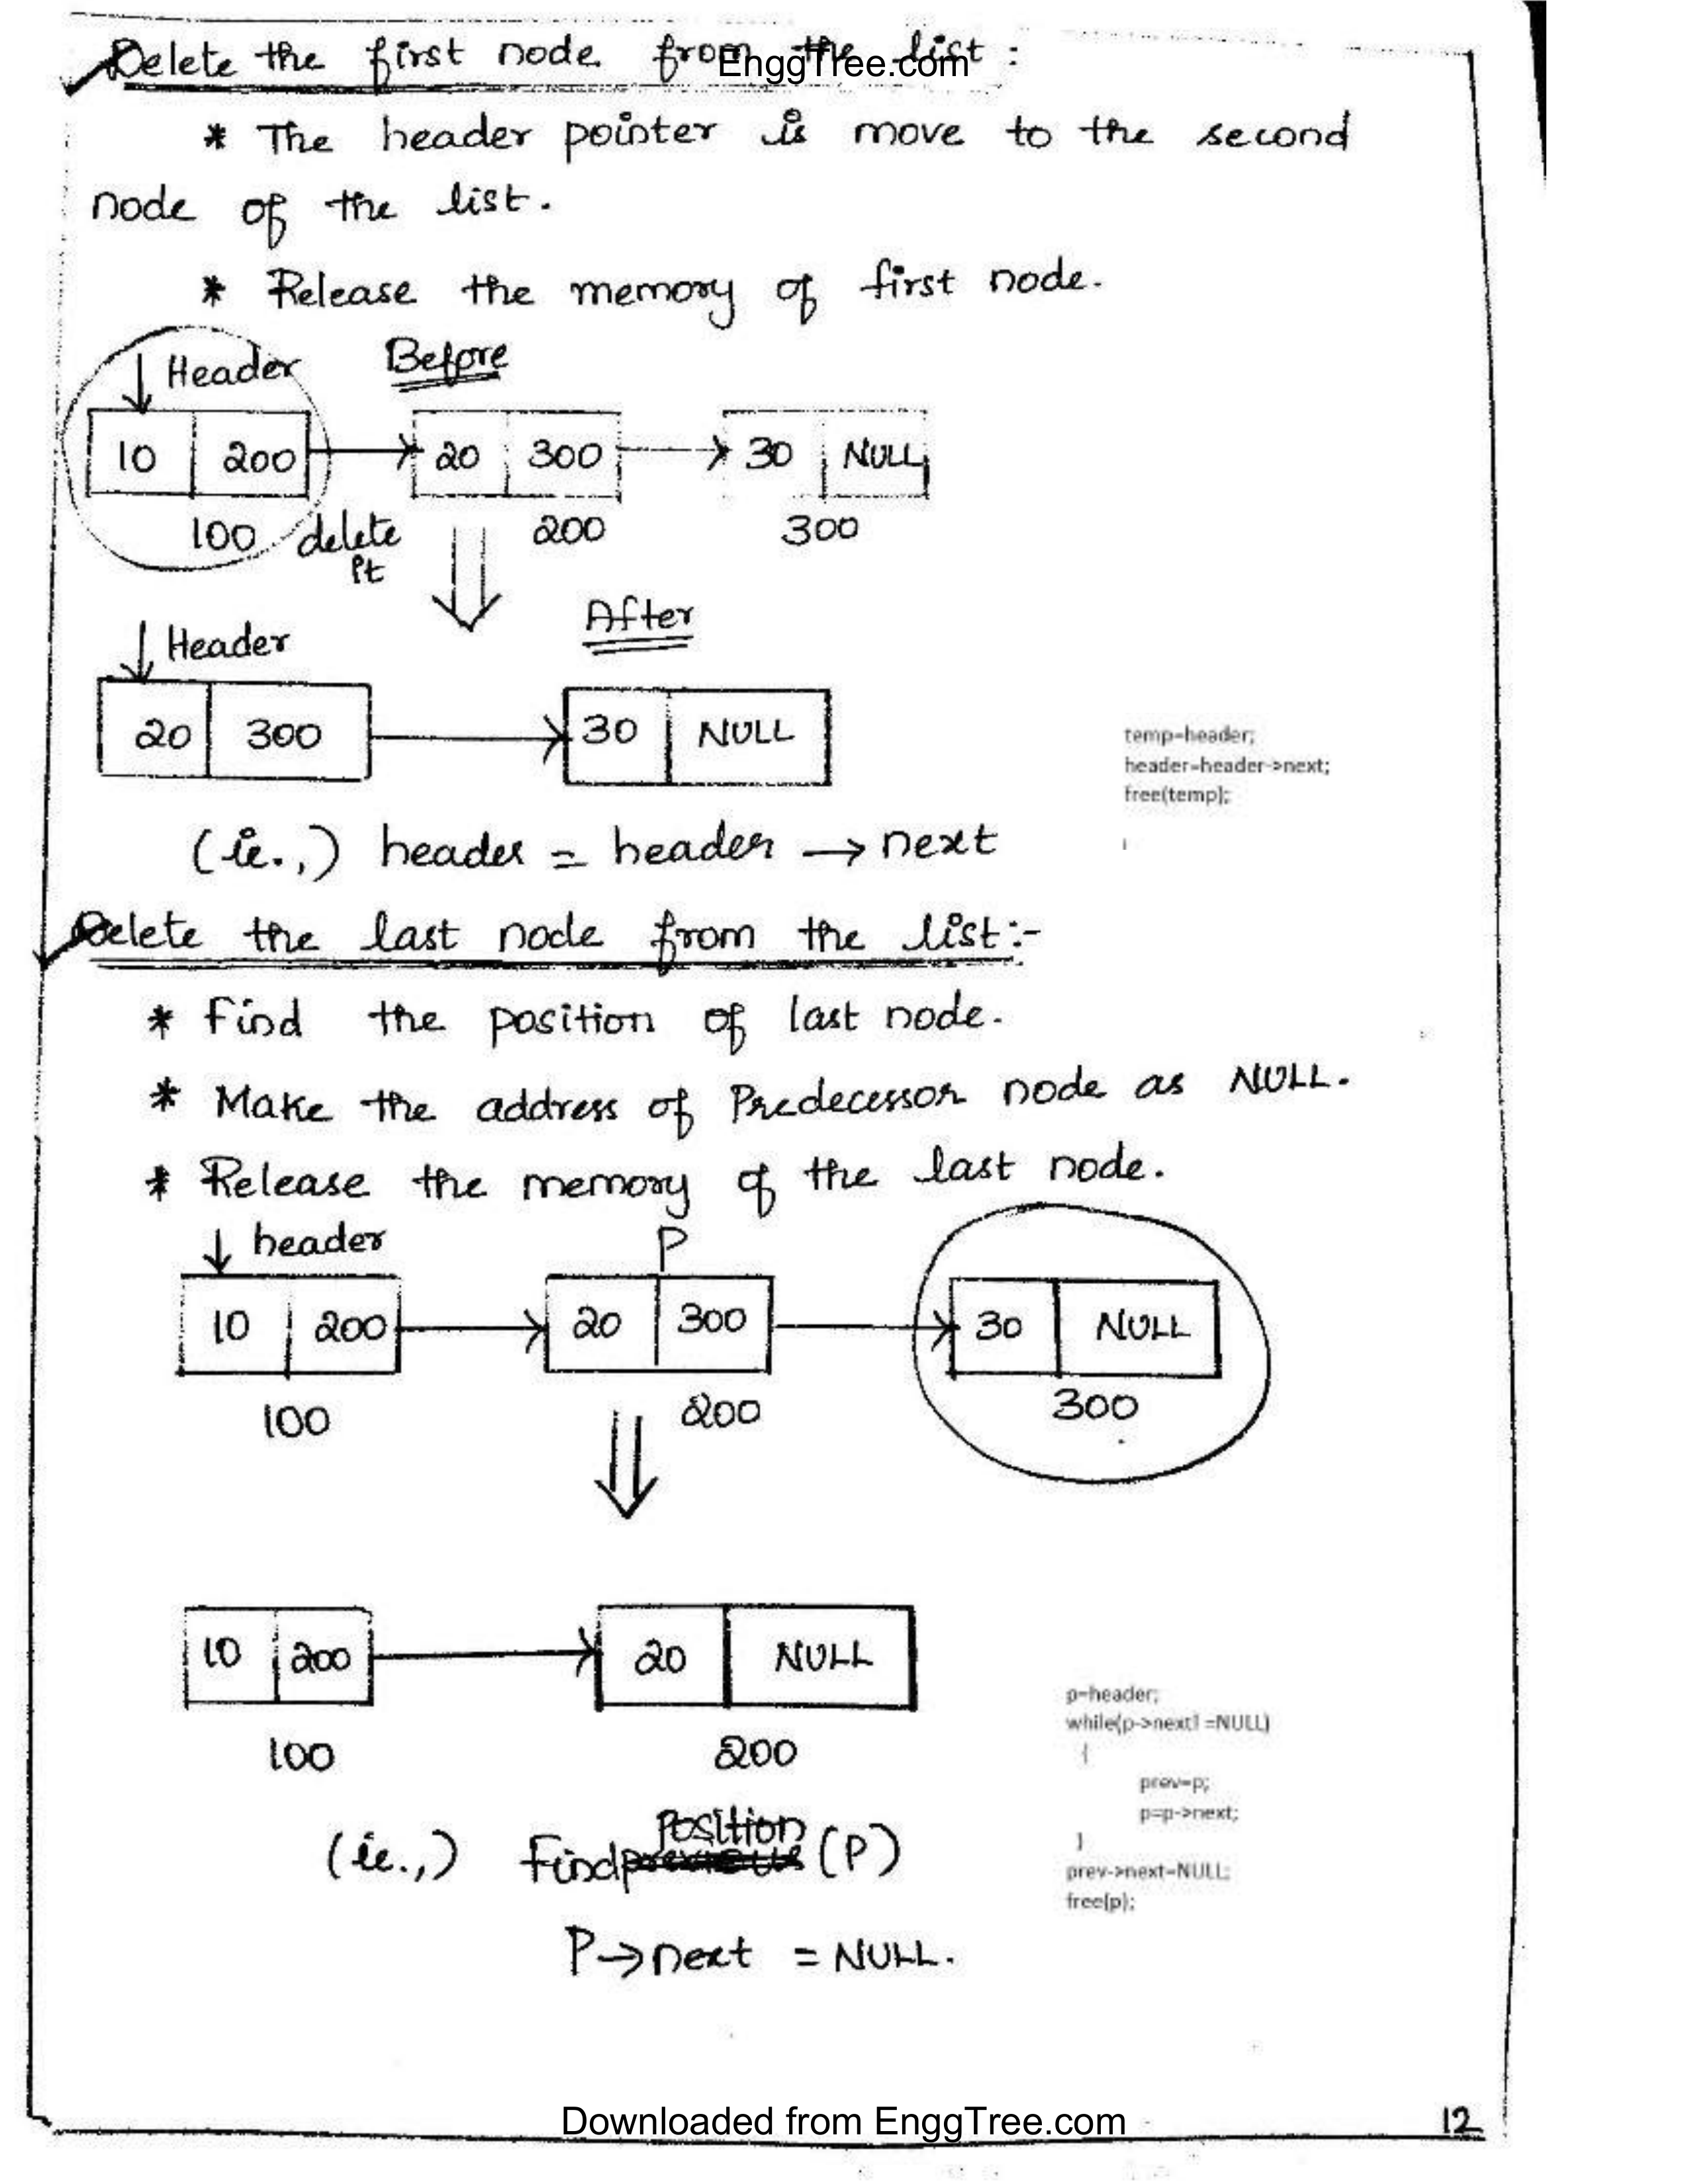 Delete the first node from the list :
EnggTree.com
* The header pointer is move to the second
node of the list.
* Release the memory of first node.
Header Before
10 200 20 300 30 NULL
100 delete 200 300
it
Header After
20 300 30 NULL
temp=header;
header=header->next;
free(temp);
(ie.,) header = header → next
Delete the last node from the list:-
* Find the position of last node.
* Make the address of Predecessor node as NULL.
* Release the memory of the last node.
header P
10 200 20 300 30 NULL
100 200 300
10 200 20 NULL
100 200
p=header;
while(p->next! =NULL)
{
prev=p;
p=p->next;
}
prev->next=NULL;
free(p);
position
(ie.,) Find previous (P)
P→next = NULL.
Downloaded from EnggTree.com
12